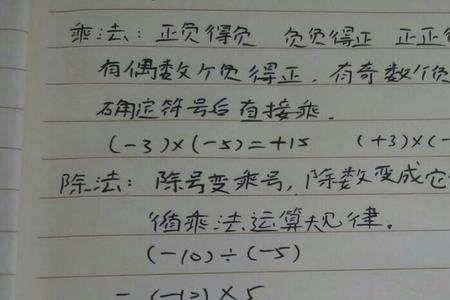 乘法：正负得负 负负得正 正正
有偶数个负得正，有奇数个负
确定符号后直接乘.
(-3)×(-5)=+15 (+3)×(-
除法：除号变乘号，除数变成它
循乘法运算规律。
(-10)÷(-5)
= (-10)×5